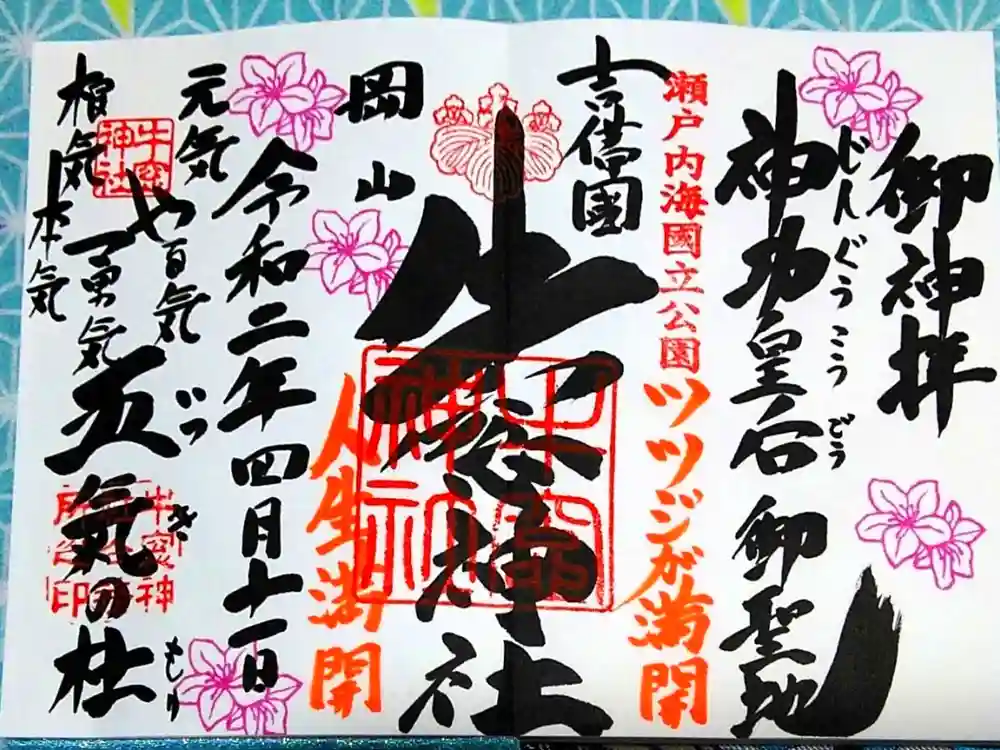 御神拝
神功皇后 御聖地
じんぐうこうごう
瀬戸内海國立公園
ツツジが満開
吉備國
牛窓神社
牛窓神社
岡山
人生満開
令和二年四月十一日
元気
や百気
勇気
根気
本気
五気の杜
いつ
き
もり
牛窓神社